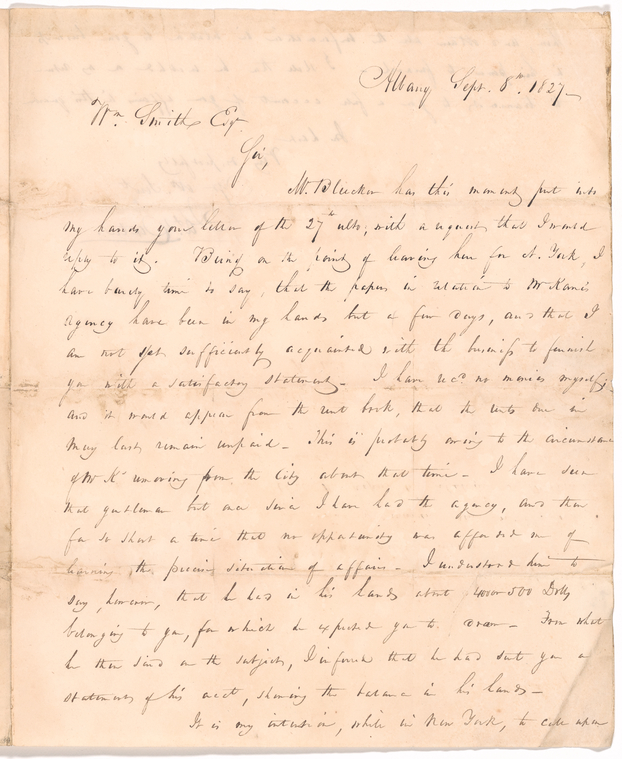 Albany Sept. 8th. 1827 –
Wm Smith Esqr
Sir,
Mr. Bleecker has this moment put into
my hands your letter of the 27th ulto, with a request that I would
reply to it. Being on the point of leaving here for N. York, I
have barely time to say, that the papers in relation to Mr Kane's
agency have been in my hands but a few days, and that I
am not yet sufficiently acquainted with the business to furnish
you with a satisfactory statement – I have recd no monies myself,
and it would appear from the rent book, that the rents due in
May last remain unpaid – This is probably owing to the circumstance
of Mr K's removing from the City about that time – I have seen
that gentleman but once since I have had the agency, and then
for so short a time that no opportunity was afforded me of
learning the precise situation of affairs – I understood him to
say, however, that he has in his hands about 400 or 500 Dolls
belonging to you, for which he expected you to draw – From what
he then said on the subject, I inferred that he had sent you a
statement of his acct, shewing the balance in his hands –
It is my intention, while in New York, to call upon